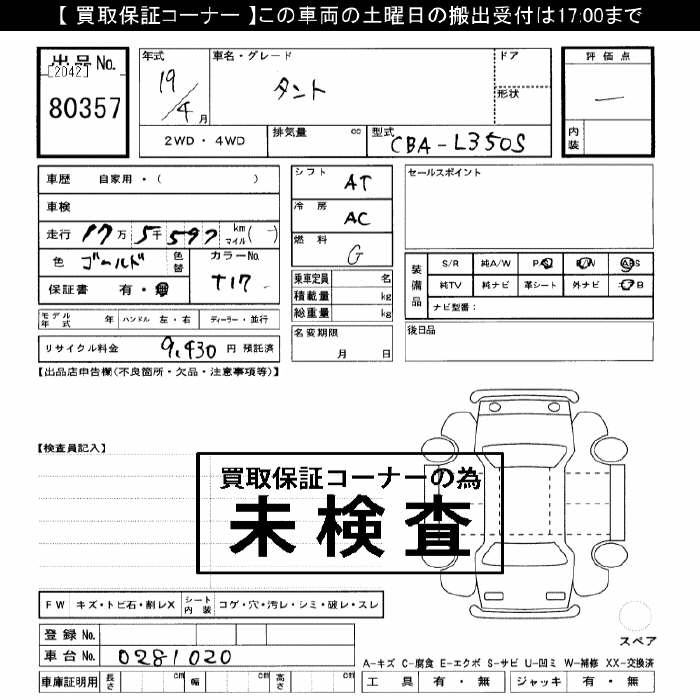 【 買取保証コーナー 】この車両の土曜日の搬出受付は17:00まで
出品No.
[2042]
80357
年式
19/4月
車名・グレード
タント
ドア
形状
評価点
―
内装
2WD・4WD
排気量 cc
型式 CBA-L350S
車歴 自家用・( )
車検
走行 17万5千597 km マイル(-)
色 ゴールド 色替
カラーNo. T17
保証書 有・無
モデル年式 年 ハンドル 左・右 ディーラー・並行
リサイクル料金 9,430円 預託済
シフト AT
冷房 AC
燃料 G
乗車定員 名
積載量 kg
総重量 kg
名変期限
月 日
セールスポイント
装備品
S/R 純A/W P/S P/W ABS
純TV 純ナビ 革シート 外ナビ エアB
ナビ型番:
後日品
【出品店申告欄(不良箇所・欠品・注意事項等)】
【検査員記入】
買取保証コーナーの為
未検査
FW キズ・トビ石・割レX シート内装 コゲ・穴・汚レ・シミ・破レ・スレ
登録No.
車台No. 0281020
車庫証明用 長さ cm 幅 cm 高さ cm
スペア
A-キズ C-腐食 E-エクボ S-サビ U-凹ミ W-補修 XX-交換済
工具 有・無 ジャッキ 有・無